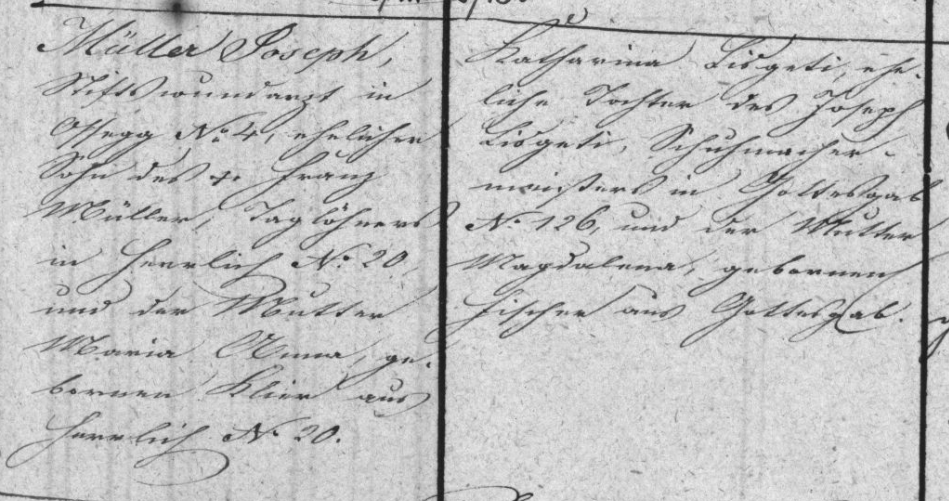 Müller Joseph,
Stiftswundarzt in
Ossegg No. 4, ehelicher
Sohn des + Franz
Müller, Taglöhners
in Herrlich No. 20,
und der Mutter
Maria Anna, ge-
bornen Klier aus
Herrlich No. 20.
Katharina Lisgeti, ehe-
liche Tochter des Joseph
Lisgeti, Schuhmacher-
meisters in Gottesgab
No. 126, und der Mutter
Magdalena, gebornen
Fischer aus Gottesgab.